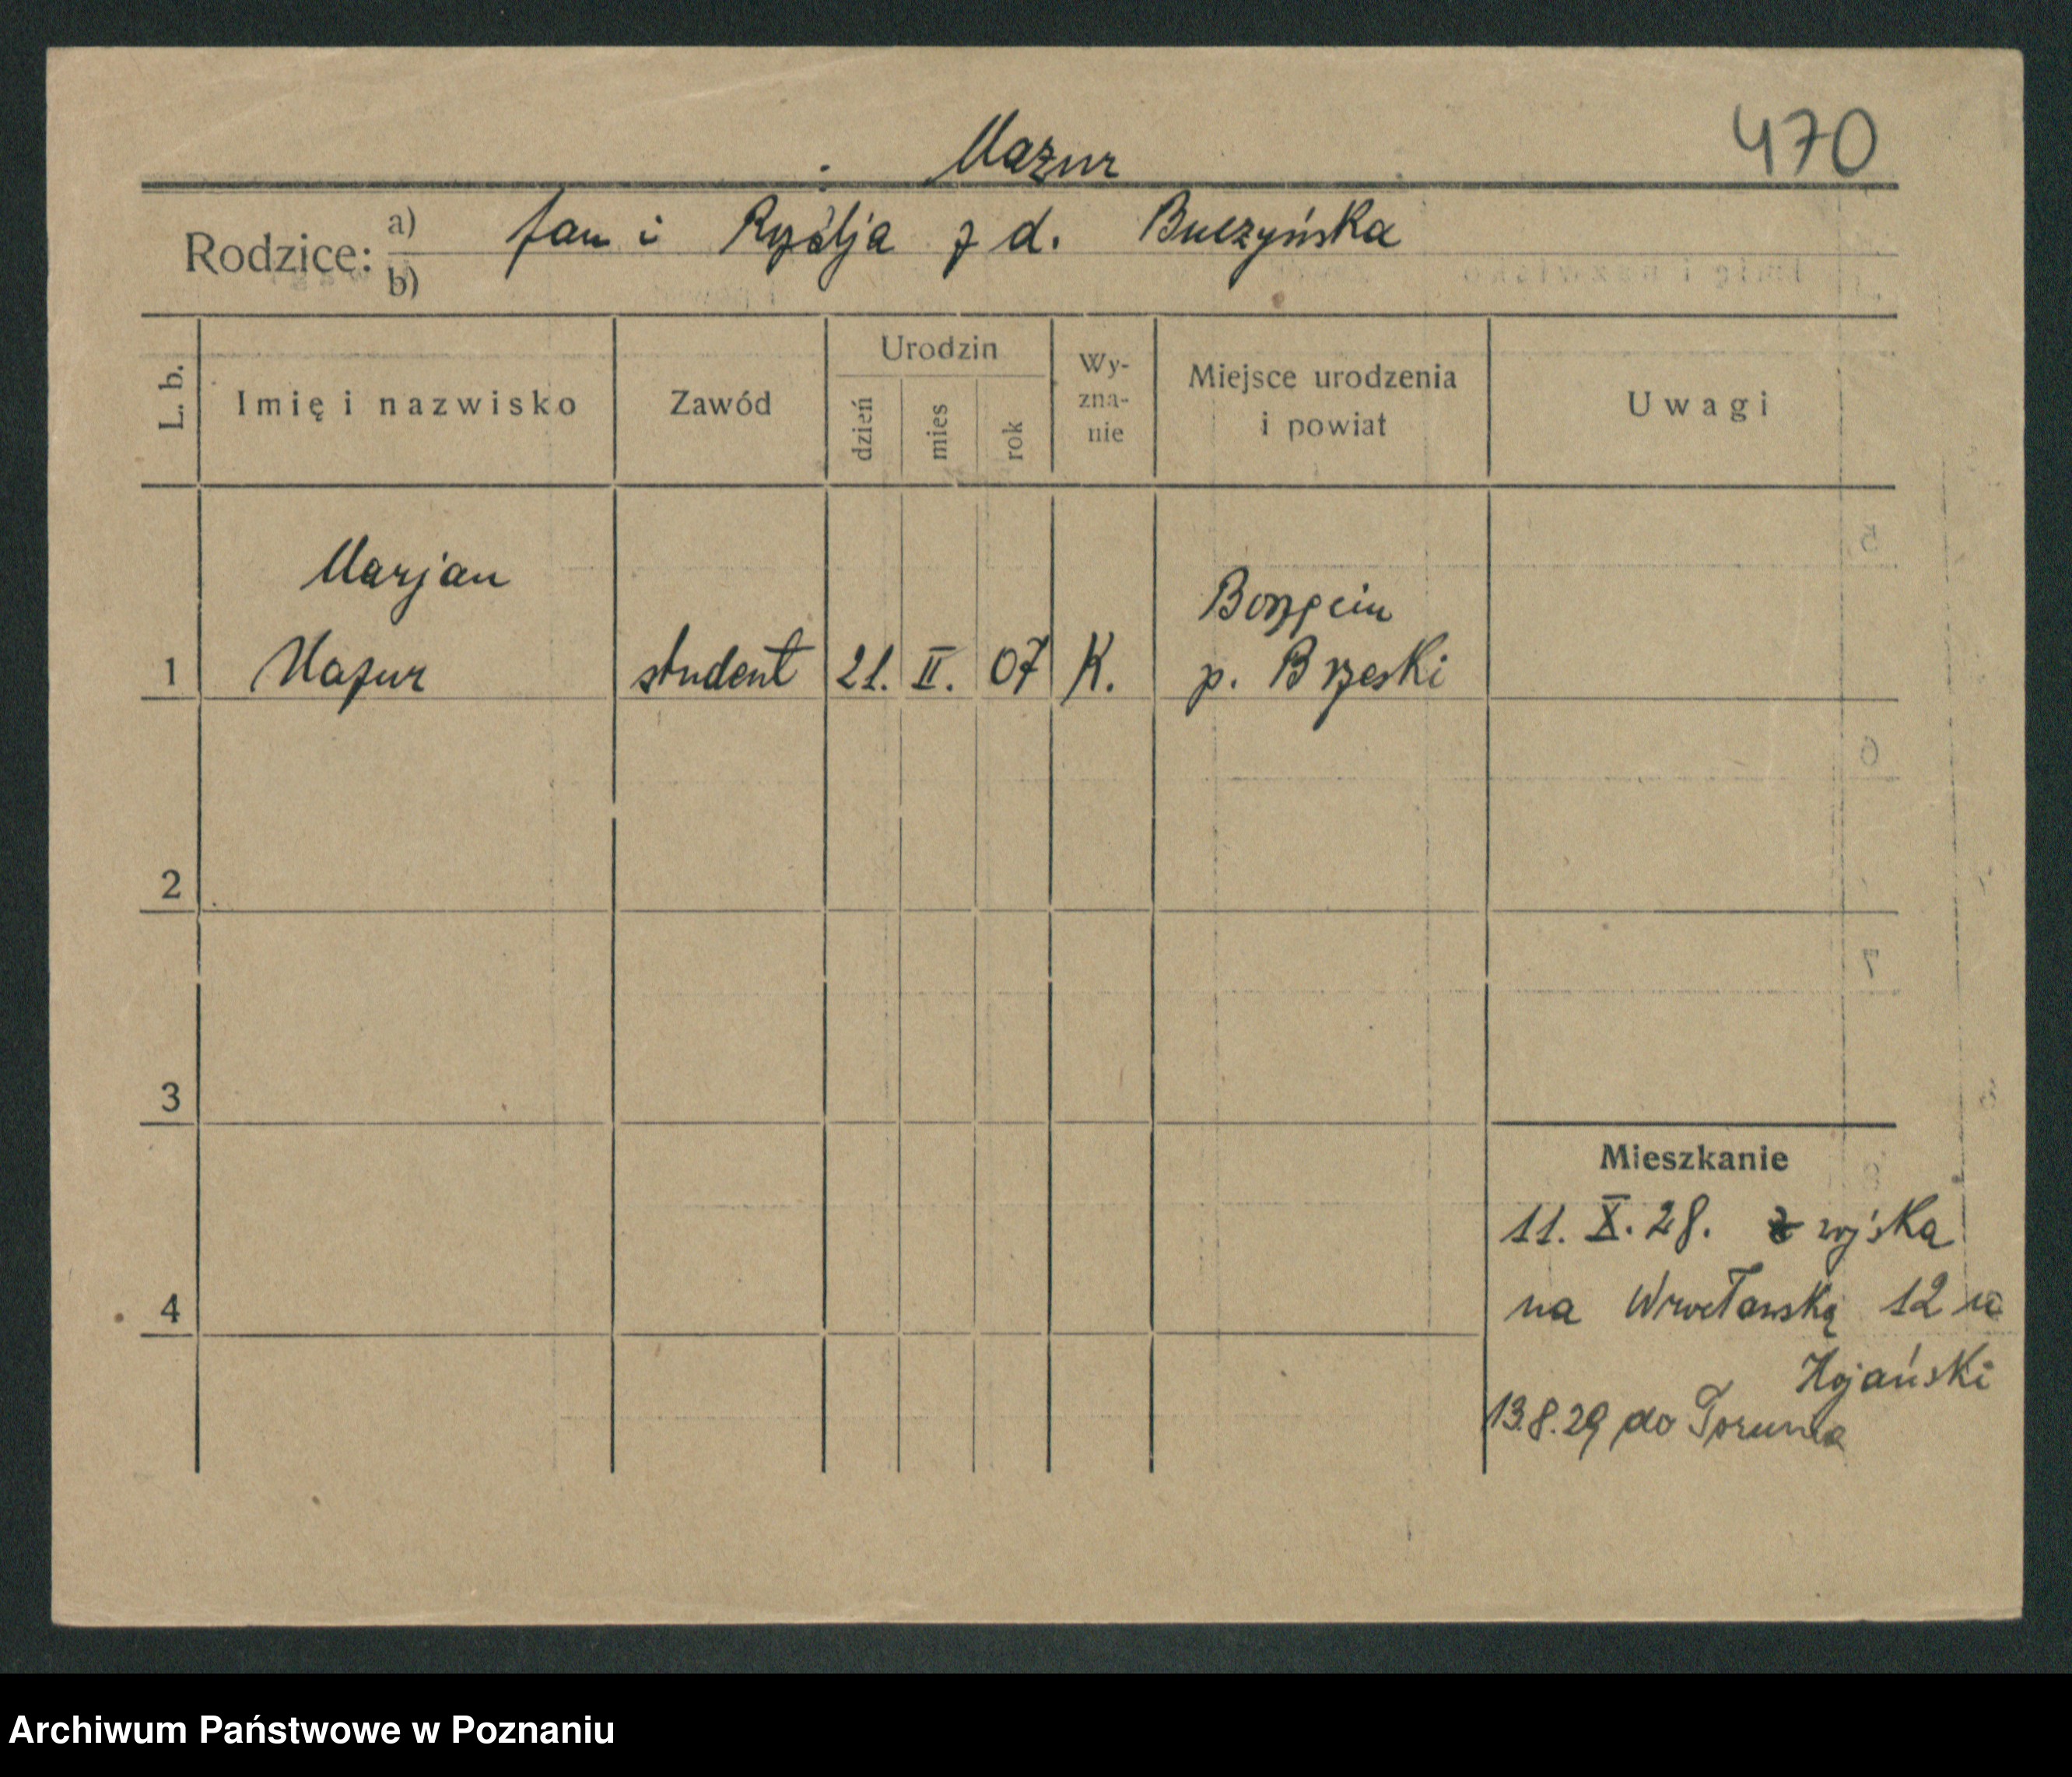 Mazur 470
Rodzice: a) Jan i Rozalja z d. Buczyńska
b)
L. b. Imię i nazwisko Zawód Urodzin dzień mies rok Wy-zna-nie Miejsce urodzenia i powiat Uwagi
Marjan
1 Mazur student 21. II. 07 K. Borzęcin
p. Brzeski
2
3
4
Mieszkanie
11. X. 28. z wojska
na Wrocławską 12 u
13.8.29 do Torunia
Archiwum Państwowe w Poznaniu